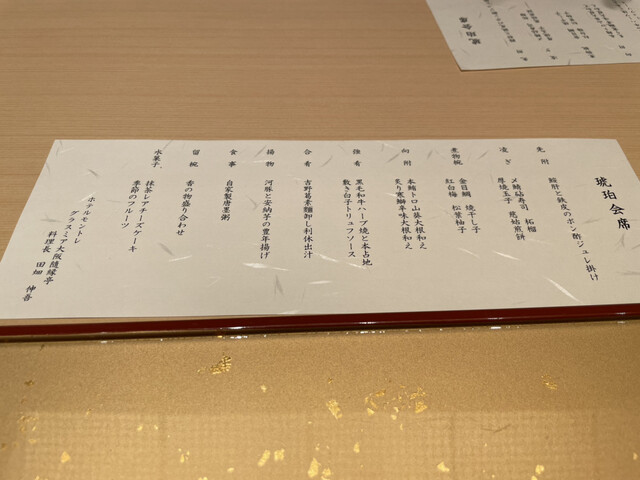 琥珀会席
先附
鮟肝と鉄皮のポン酢ジュレ掛け
凌ぎ
〆鯖砧寿司 柘榴
厚焼玉子 慈姑煎餅
煮物椀
金目鯛 焼干し子
紅白梅 松葉柚子
向附
本鮪トロ山葵大根和え
炙り寒鰤辛味大根和え
強肴
黒毛和牛ハーブ焼と本占地
敷き白子トリュフソース
合肴
吉野葛素麺卸し利休出汁
揚物
河豚と安納芋の豊年揚げ
食事
自家製唐墨粥
留椀
香の物盛り合わせ
水菓子
抹茶レアチーズケーキ
季節のフルーツ
ホテルモントレ
グラスミア大阪隨縁亭
料理長 田畑 伸吾
琥珀会席